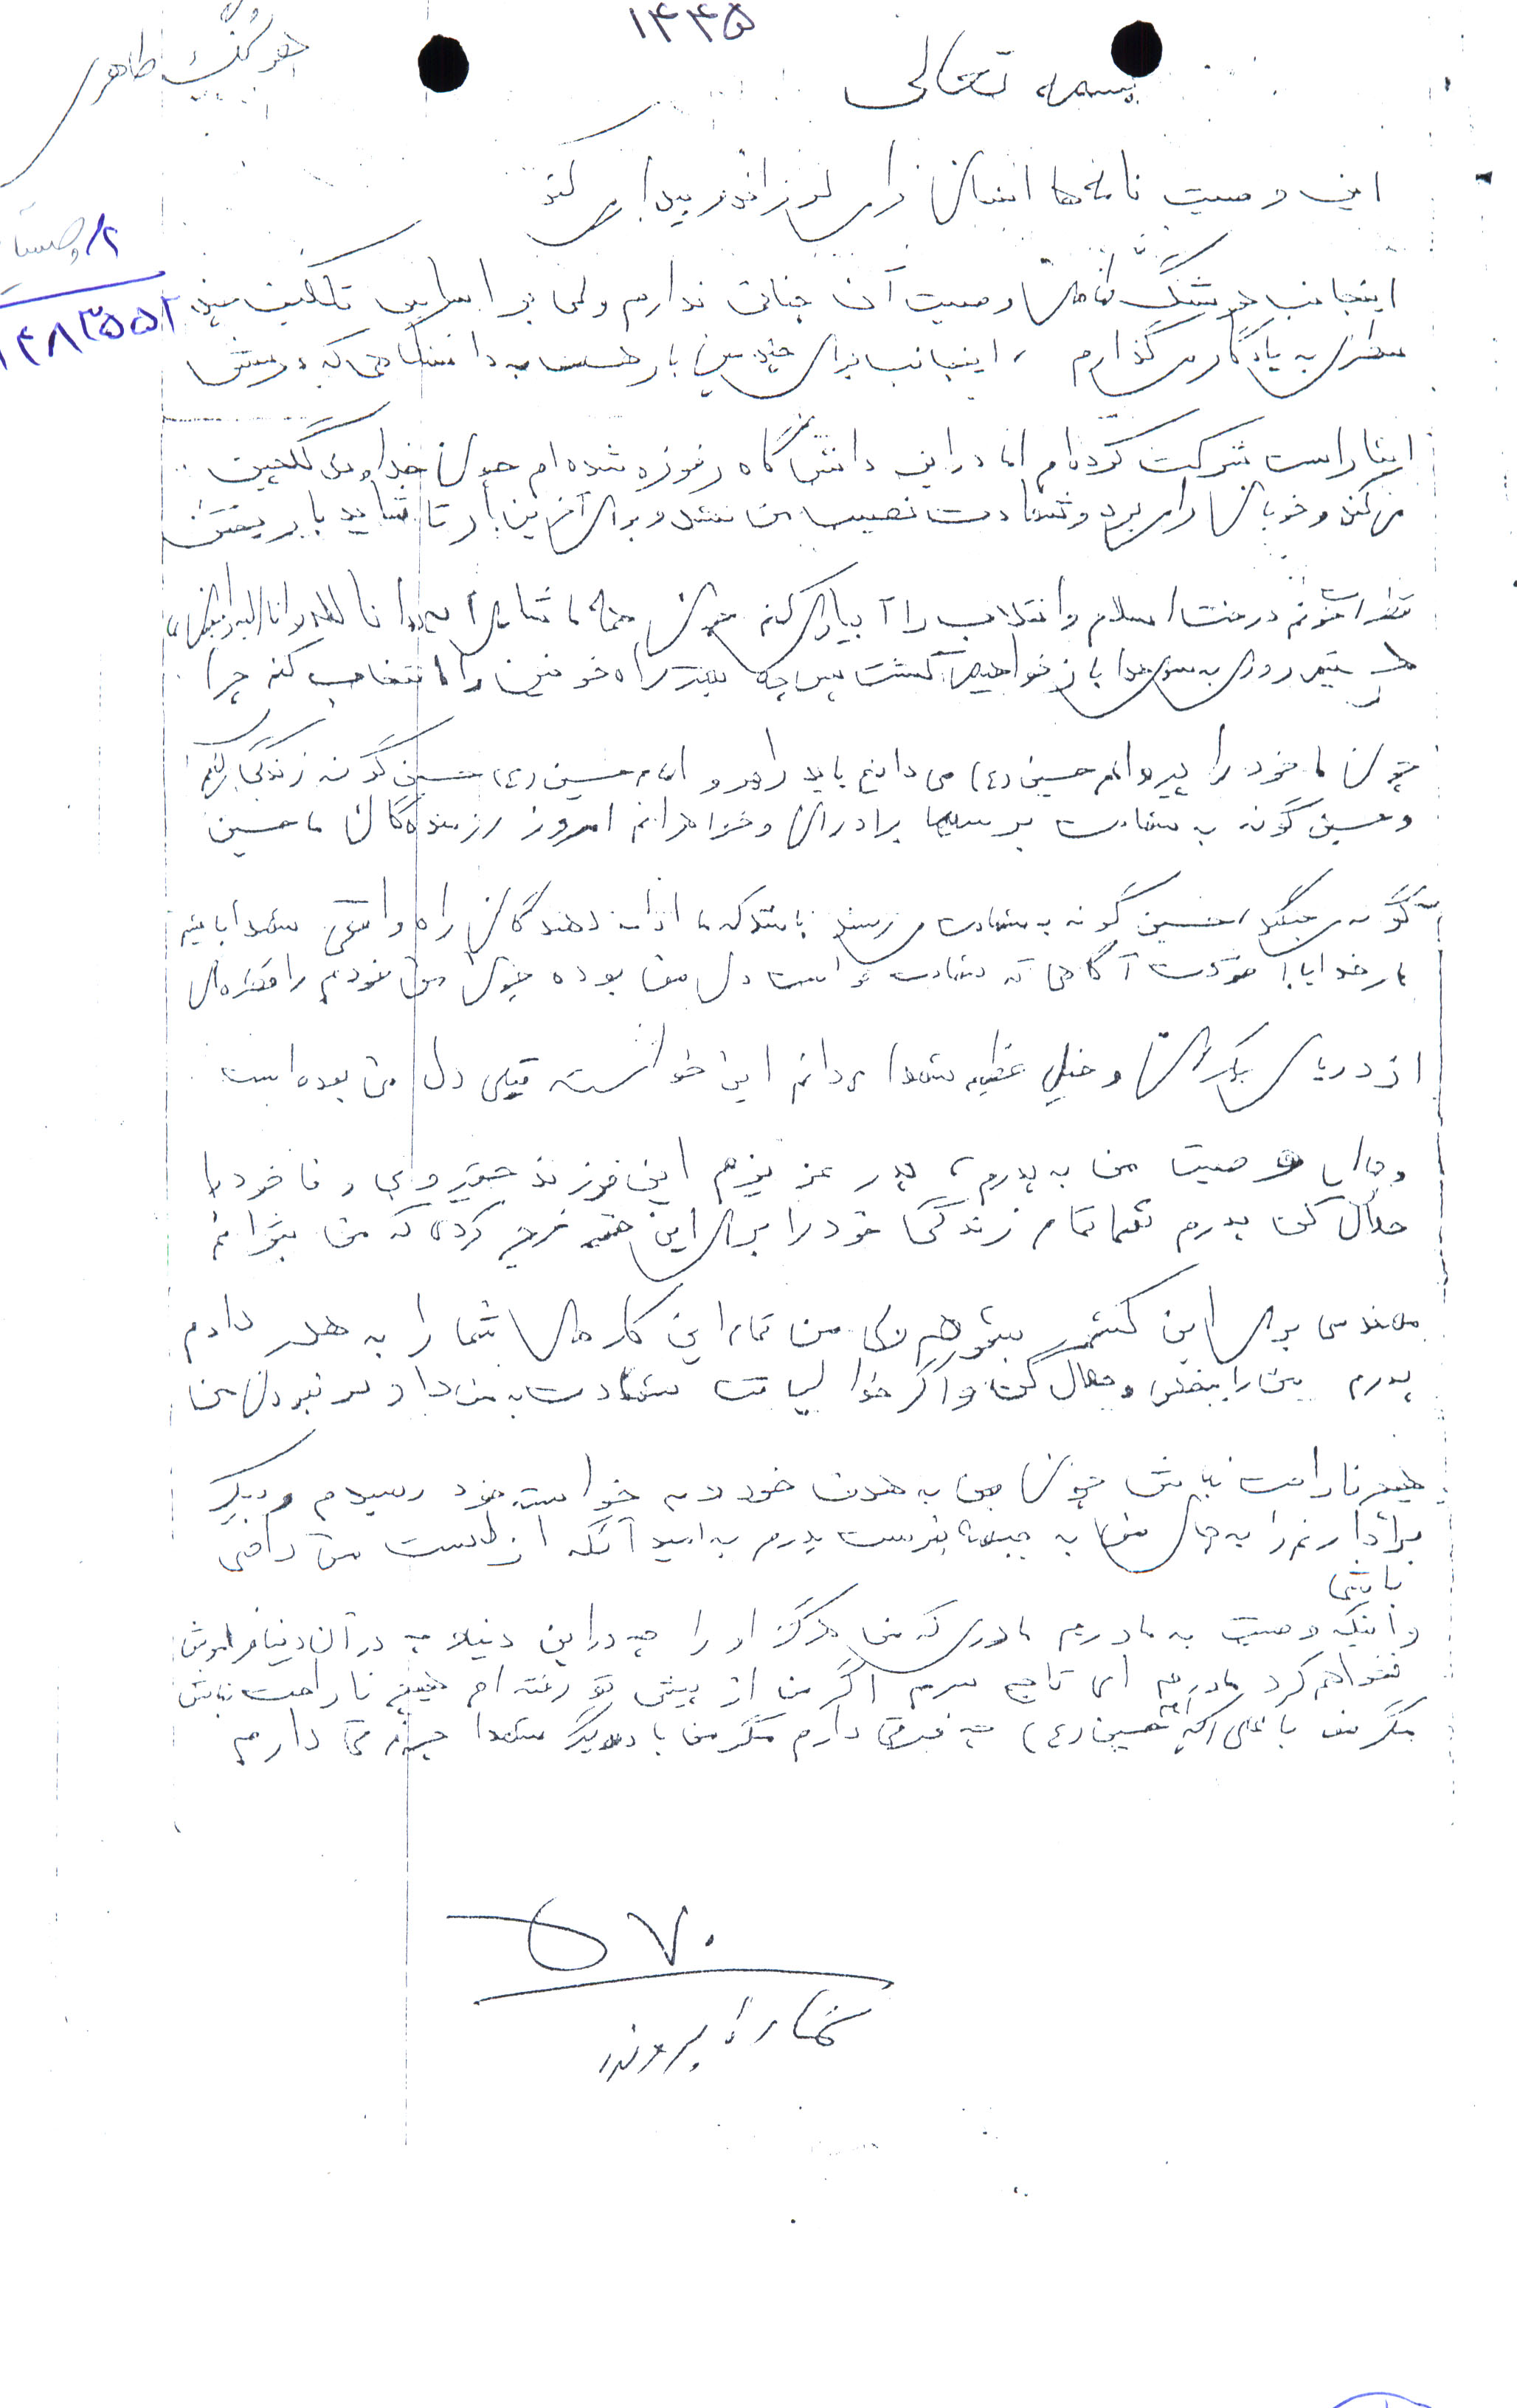 ۱۴۴۵
هوشنگ طاهری
بسمه تعالی
۲/ وصیت
۱۴۸۳۵۵۲
این وصیت نامه ها انسان را می لرزاند و بیدار می کند
اینجانب هوشنگ طاهری وصیت آن چنانی ندارم ولی بر اساس تکلیف چند
سطری به یادگار می گذارم ، اینجانب برای چندمین بار هست به دانشگاهی که درسش
ایثار است شرکت کرده ام اما در این دانشگاه رفوزه شده ام چون خداوند گلچین
می کند و خوبان را می برد و شهادت نصیب من نشد و برای آخرین بار تا شاید با ریختن
قطرات خونم درخت اسلام و انقلاب را آبیاری کنم چون همه ما شامل آیه انا لله و انا الیه راجعون
هستیم روزی به سوی خدا باز خواهیم گشت پس چه بهتر راه خونین را انتخاب کنم چرا
چون ما خود را پیرو امام حسین (ع) می دانیم باید راهرو امام حسین (ع) حسین گونه زندگی کنیم
و حسین گونه به شهادت برسیم برادران و خواهرانم امروز رزمندگان ما حسین
گونه می جنگند حسین گونه به شهادت می رسند باشد که ما ادامه دهندگان راه شهدا باشیم
بار خدایا خودت آگاهی که شهادت خواست دل من بوده چون من خودم را قطره ای
از دریای بیکران و خیل عظیم شهدا می دانم این خواسته قلبی دل من بوده است
و حال وصیت من به پدرم ، پدر عزیزم این فرزند حقیر و بی وفا خود را
حلال کن پدرم شما تمام زندگی خود را برای این خرج کردی که من بتوانم
مهندسی برای این کشور بشوم ولی من تمام این کارهای شما را به هدر دادم
پدرم من را ببخش و حلال کن و اگر خدا لیاقت شهادت به من داد در نبودن من
هیچ ناراحت نباش چون من به هدف خود و به خواسته خود رسیدم و دیگر
برادارنم را به جای من به جبهه بفرست پدرم به امید آنکه از دست من راضی
باشی
و اینکه وصیت به مادرم مادری که من هرگز او را چه در این دنیا و چه در آن دنیا فراموش
نخواهم کرد مادرم ای تاج سرم اگر من از پیش تو رفته ام هیچ ناراحت نباش
مگر من با علی اکبر حسین (ع) چه فرقی دارم مگر من با دیگر شهدا چه فرقی دارم
۵۷۰
شماره پرونده